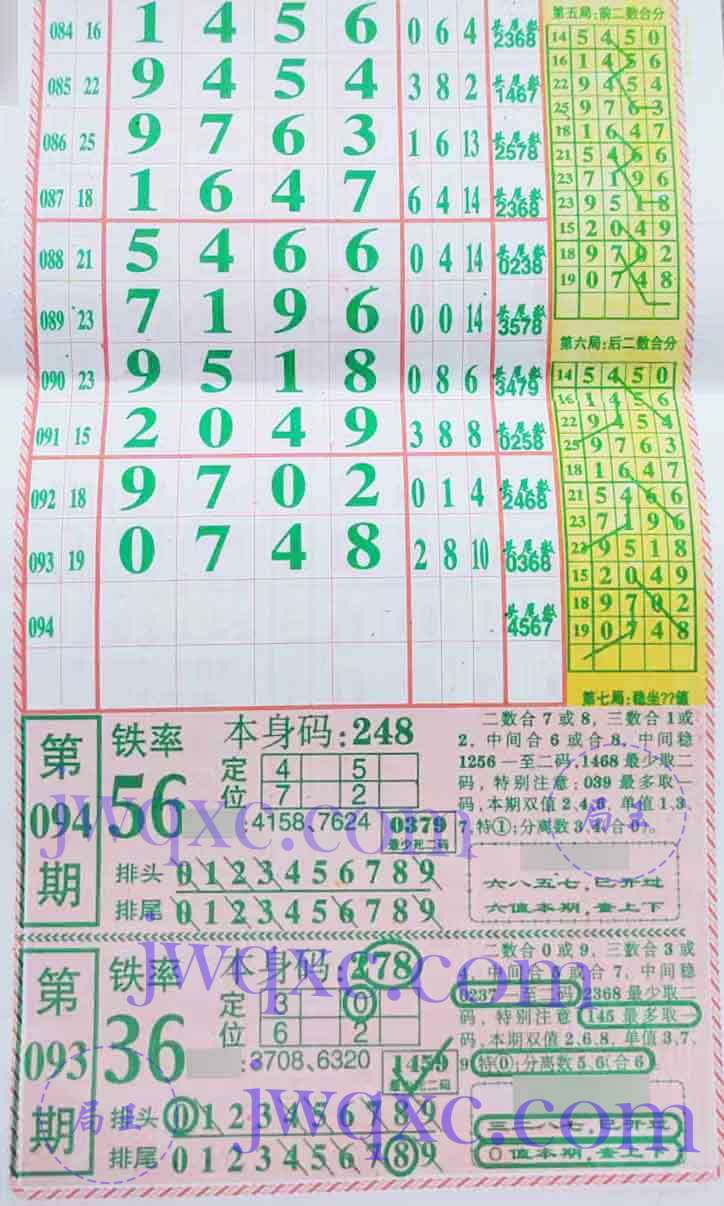 084 16 1 4 5 6 0 6 4 2368
085 22 9 4 5 4 3 8 2 1467
086 25 9 7 6 3 1 6 13 2578
087 18 1 6 4 7 6 4 14 2368
088 21 5 4 6 6 0 4 14 0238
089 23 7 1 9 6 0 0 14 3578
090 23 9 5 1 8 0 8 6 3479
091 15 2 0 4 9 3 8 8 0258
092 18 9 7 0 2 0 1 4 2468
093 19 0 7 4 8 2 8 10 0368
094 4567
第五局:前二数合分
14 5 4 5 0
16 1 4 5 6
22 9 4 5 4
25 9 7 6 3
18 1 6 4 7
21 5 4 6 6
23 7 1 9 6
23 9 5 1 8
15 2 0 4 9
18 9 7 0 2
19 0 7 4 8
第六局:后二数合分
14 5 4 5 0
16 1 4 5 6
22 9 4 5 4
25 9 7 6 3
18 1 6 4 7
21 5 4 6 6
23 7 1 9 6
23 9 5 1 8
15 2 0 4 9
18 9 7 0 2
19 0 7 4 8
第七局:稳坐??值
第
094
期
铁率
56
本身码:248
定位
4 5
7 2
:4158、7624
0379
最少死二码
排头 0 1 2 3 4 5 6 7 8 9
排尾 0 1 2 3 4 5 6 7 8 9
二数合7或8,三数合1或
2,中间合6或合8,中间稳
1256一至二码,1468最少取二
码,特别注意:039最多取一
码,本期双值2.4.6,单值1.3.
7,特①;分离数3.4.合0。
六八五七,已开过
六值本期,查上下
第
093
期
铁率
36
本身码:278
定位
3 0
6 2
:3708、6320
1459
排头 0 1 2 3 4 5 6 7 8 9
排尾 0 1 2 3 4 5 6 7 8 9
二数合0或9,三数合3或
4,中间合5或合7,中间稳
0237一至二码2368最少取二
码,特别注意 145最多取一
码,本期双值2.6.8,单值3.7.
9特0;分离数5.6合6
0值本期,查上下
jwqxc.com
jwqxc.com
jwqxc.com
局王
局王